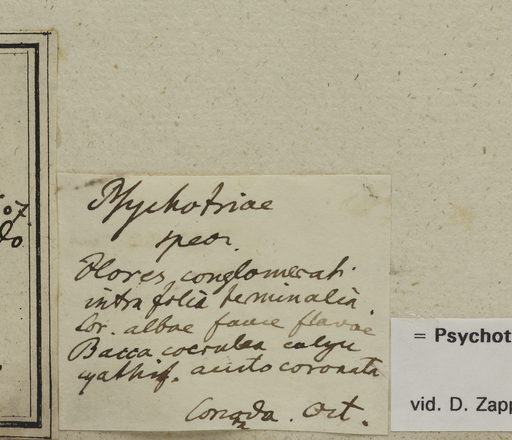 07
do
Psychotriae
specr.
Flores conglomerati
intra folia terminalia.
Cor. albae fauce flavae
Bacca coerulea calyce
cyathif. acuto coronata
Oct.
= Psychot
vid. D. Zapp